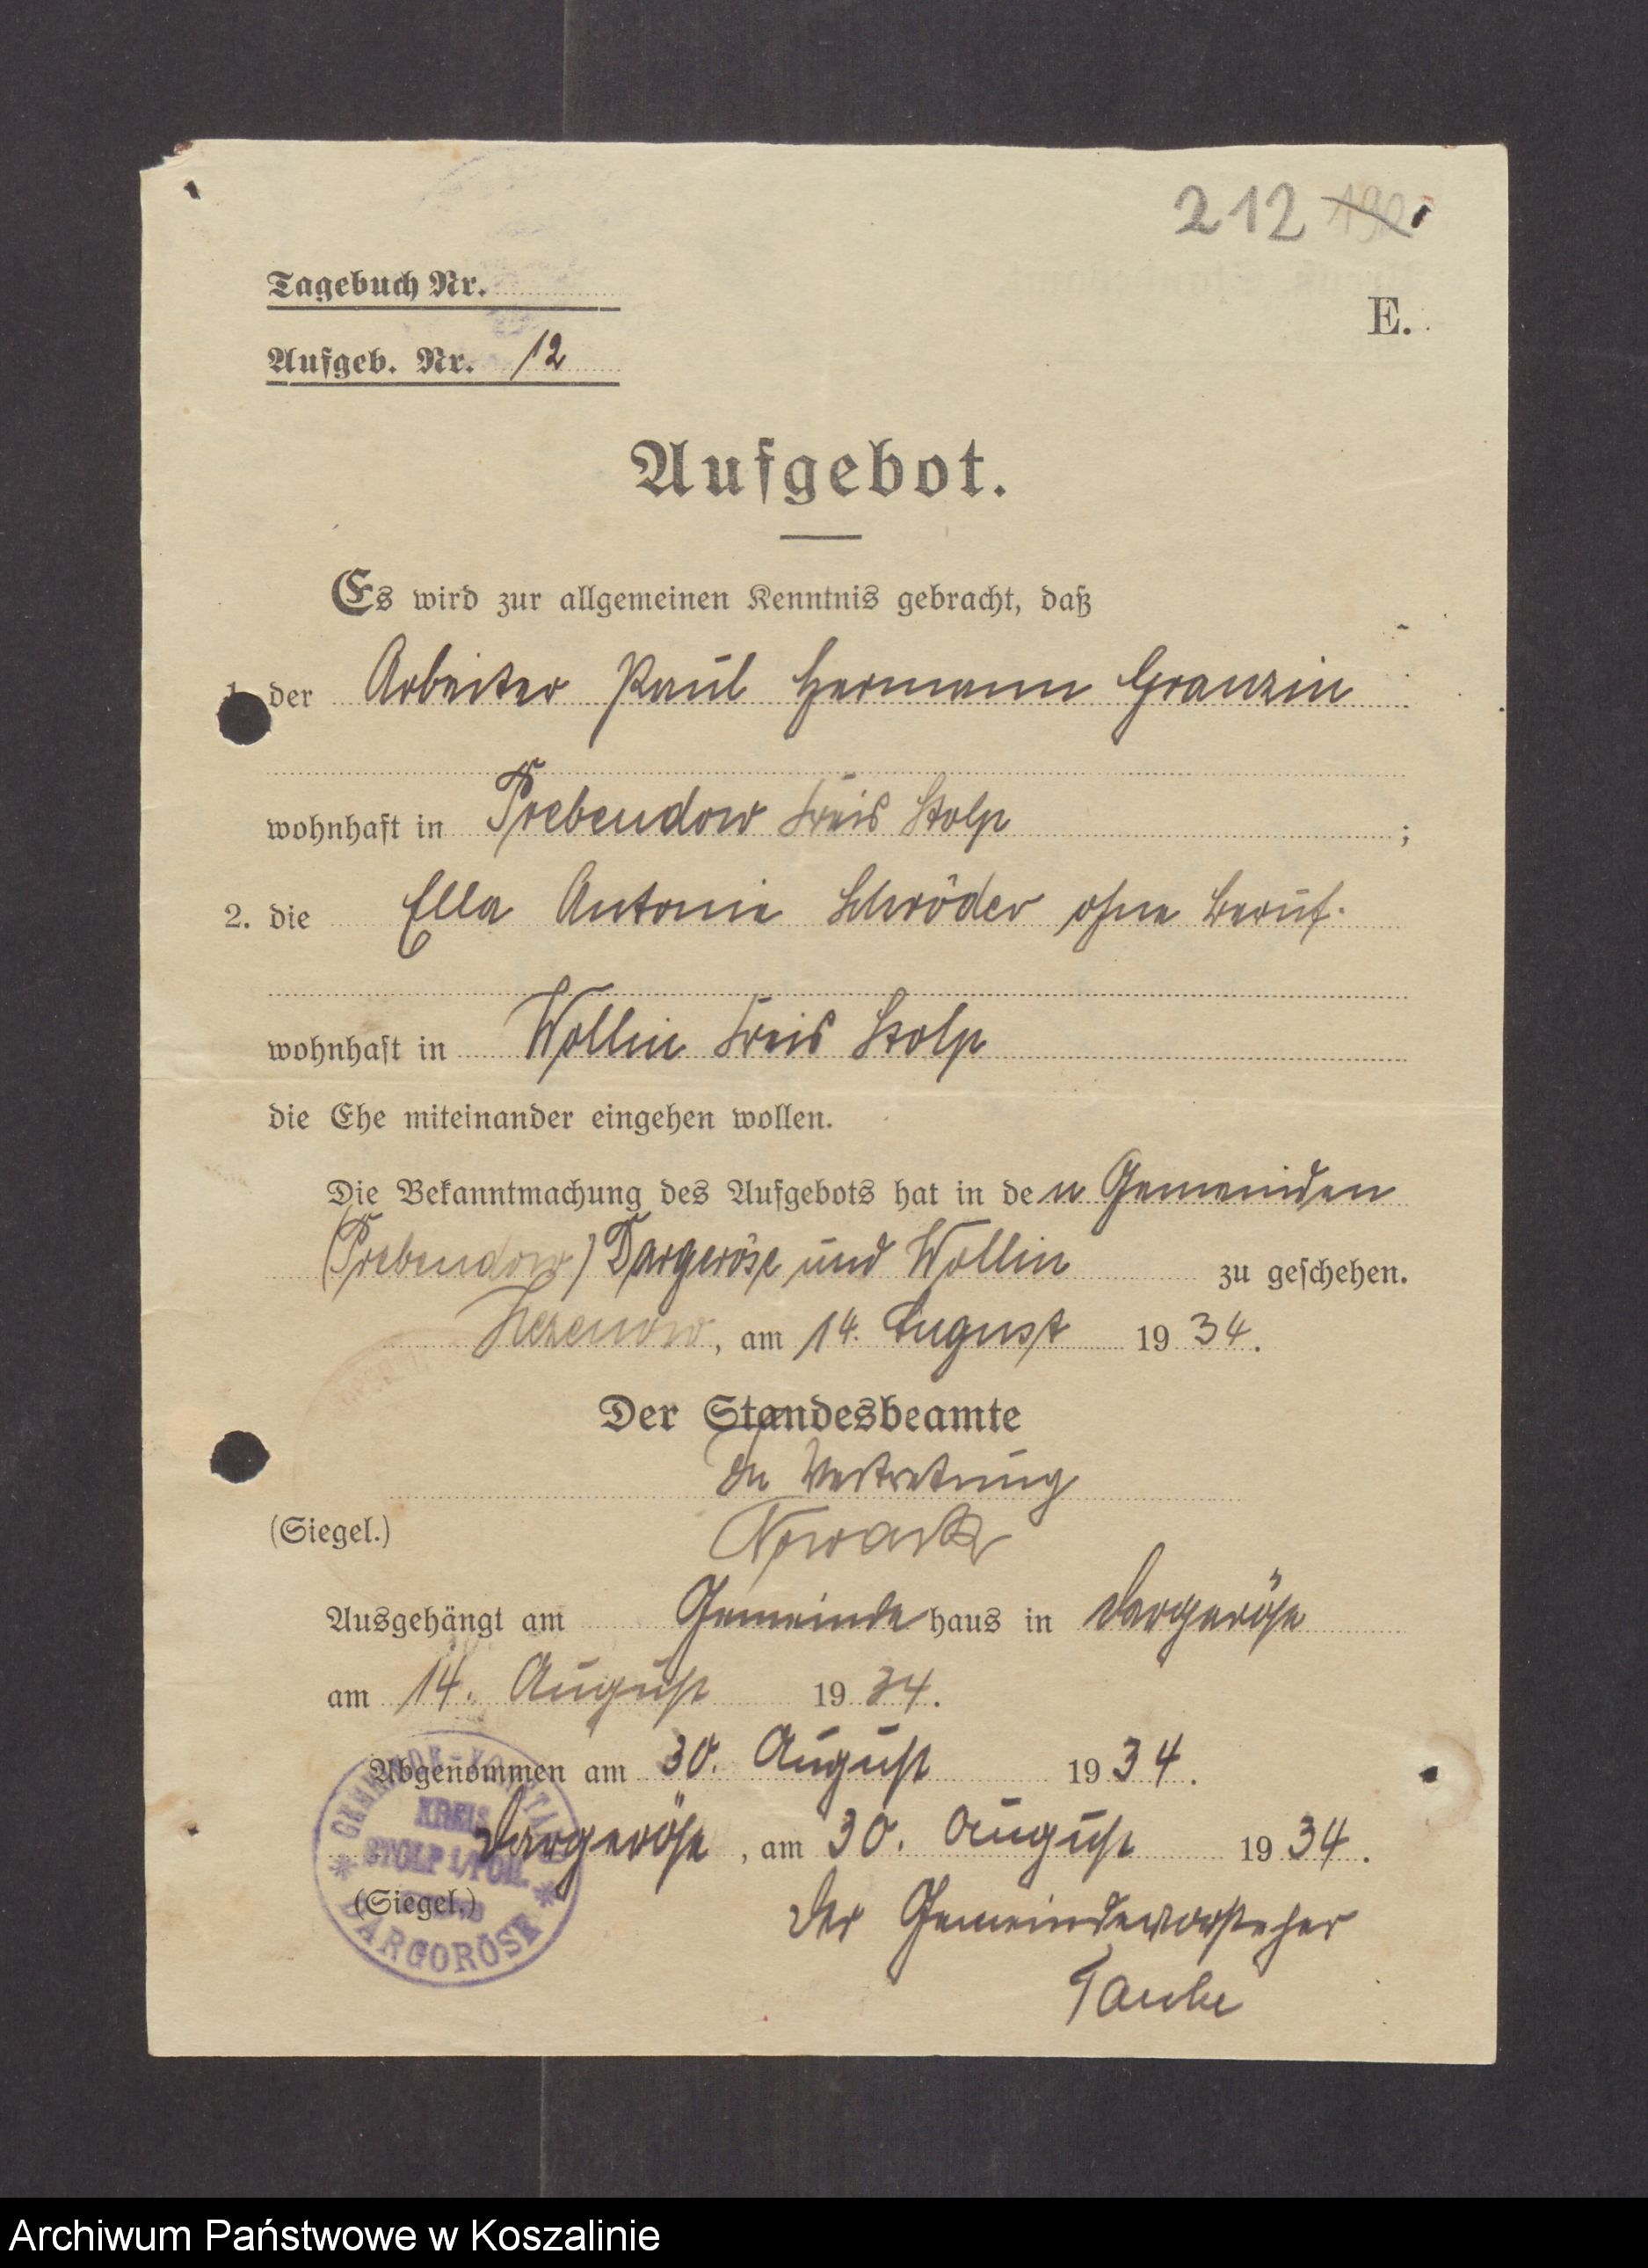 212 192
Tagebuch Nr.
E.
Aufgeb. Nr. 12
Aufgebot.
Es wird zur allgemeinen Kenntnis gebracht, daß
1. der Arbeiter Paul Hermann Granzin
wohnhaft in Prebendow Kreis Stolp ;
2. die Ella Antonie Schröder ohne Beruf.
wohnhaft in Wollin Kreis Stolp
die Ehe miteinander eingehen wollen.
Die Bekanntmachung des Aufgebots hat in den Gemeinden
(Prebendow) Dargeröse und Wollin zu geschehen.
Zezenow, am 14. August 1934.
Der Standesbeamte
In Vertretung
(Siegel.)
Nowack
Ausgehängt am Gemeindehaus in Dargeröse
am 14. August 1934.
Abgenommen am 30. August 1934.
Dargeröse, am 30. August 1934.
(Siegel.)
Der Gemeindevorsteher
Taube
KREIS
STOLP i/POM.
DARGORÖSE
Archiwum Państwowe w Koszalinie